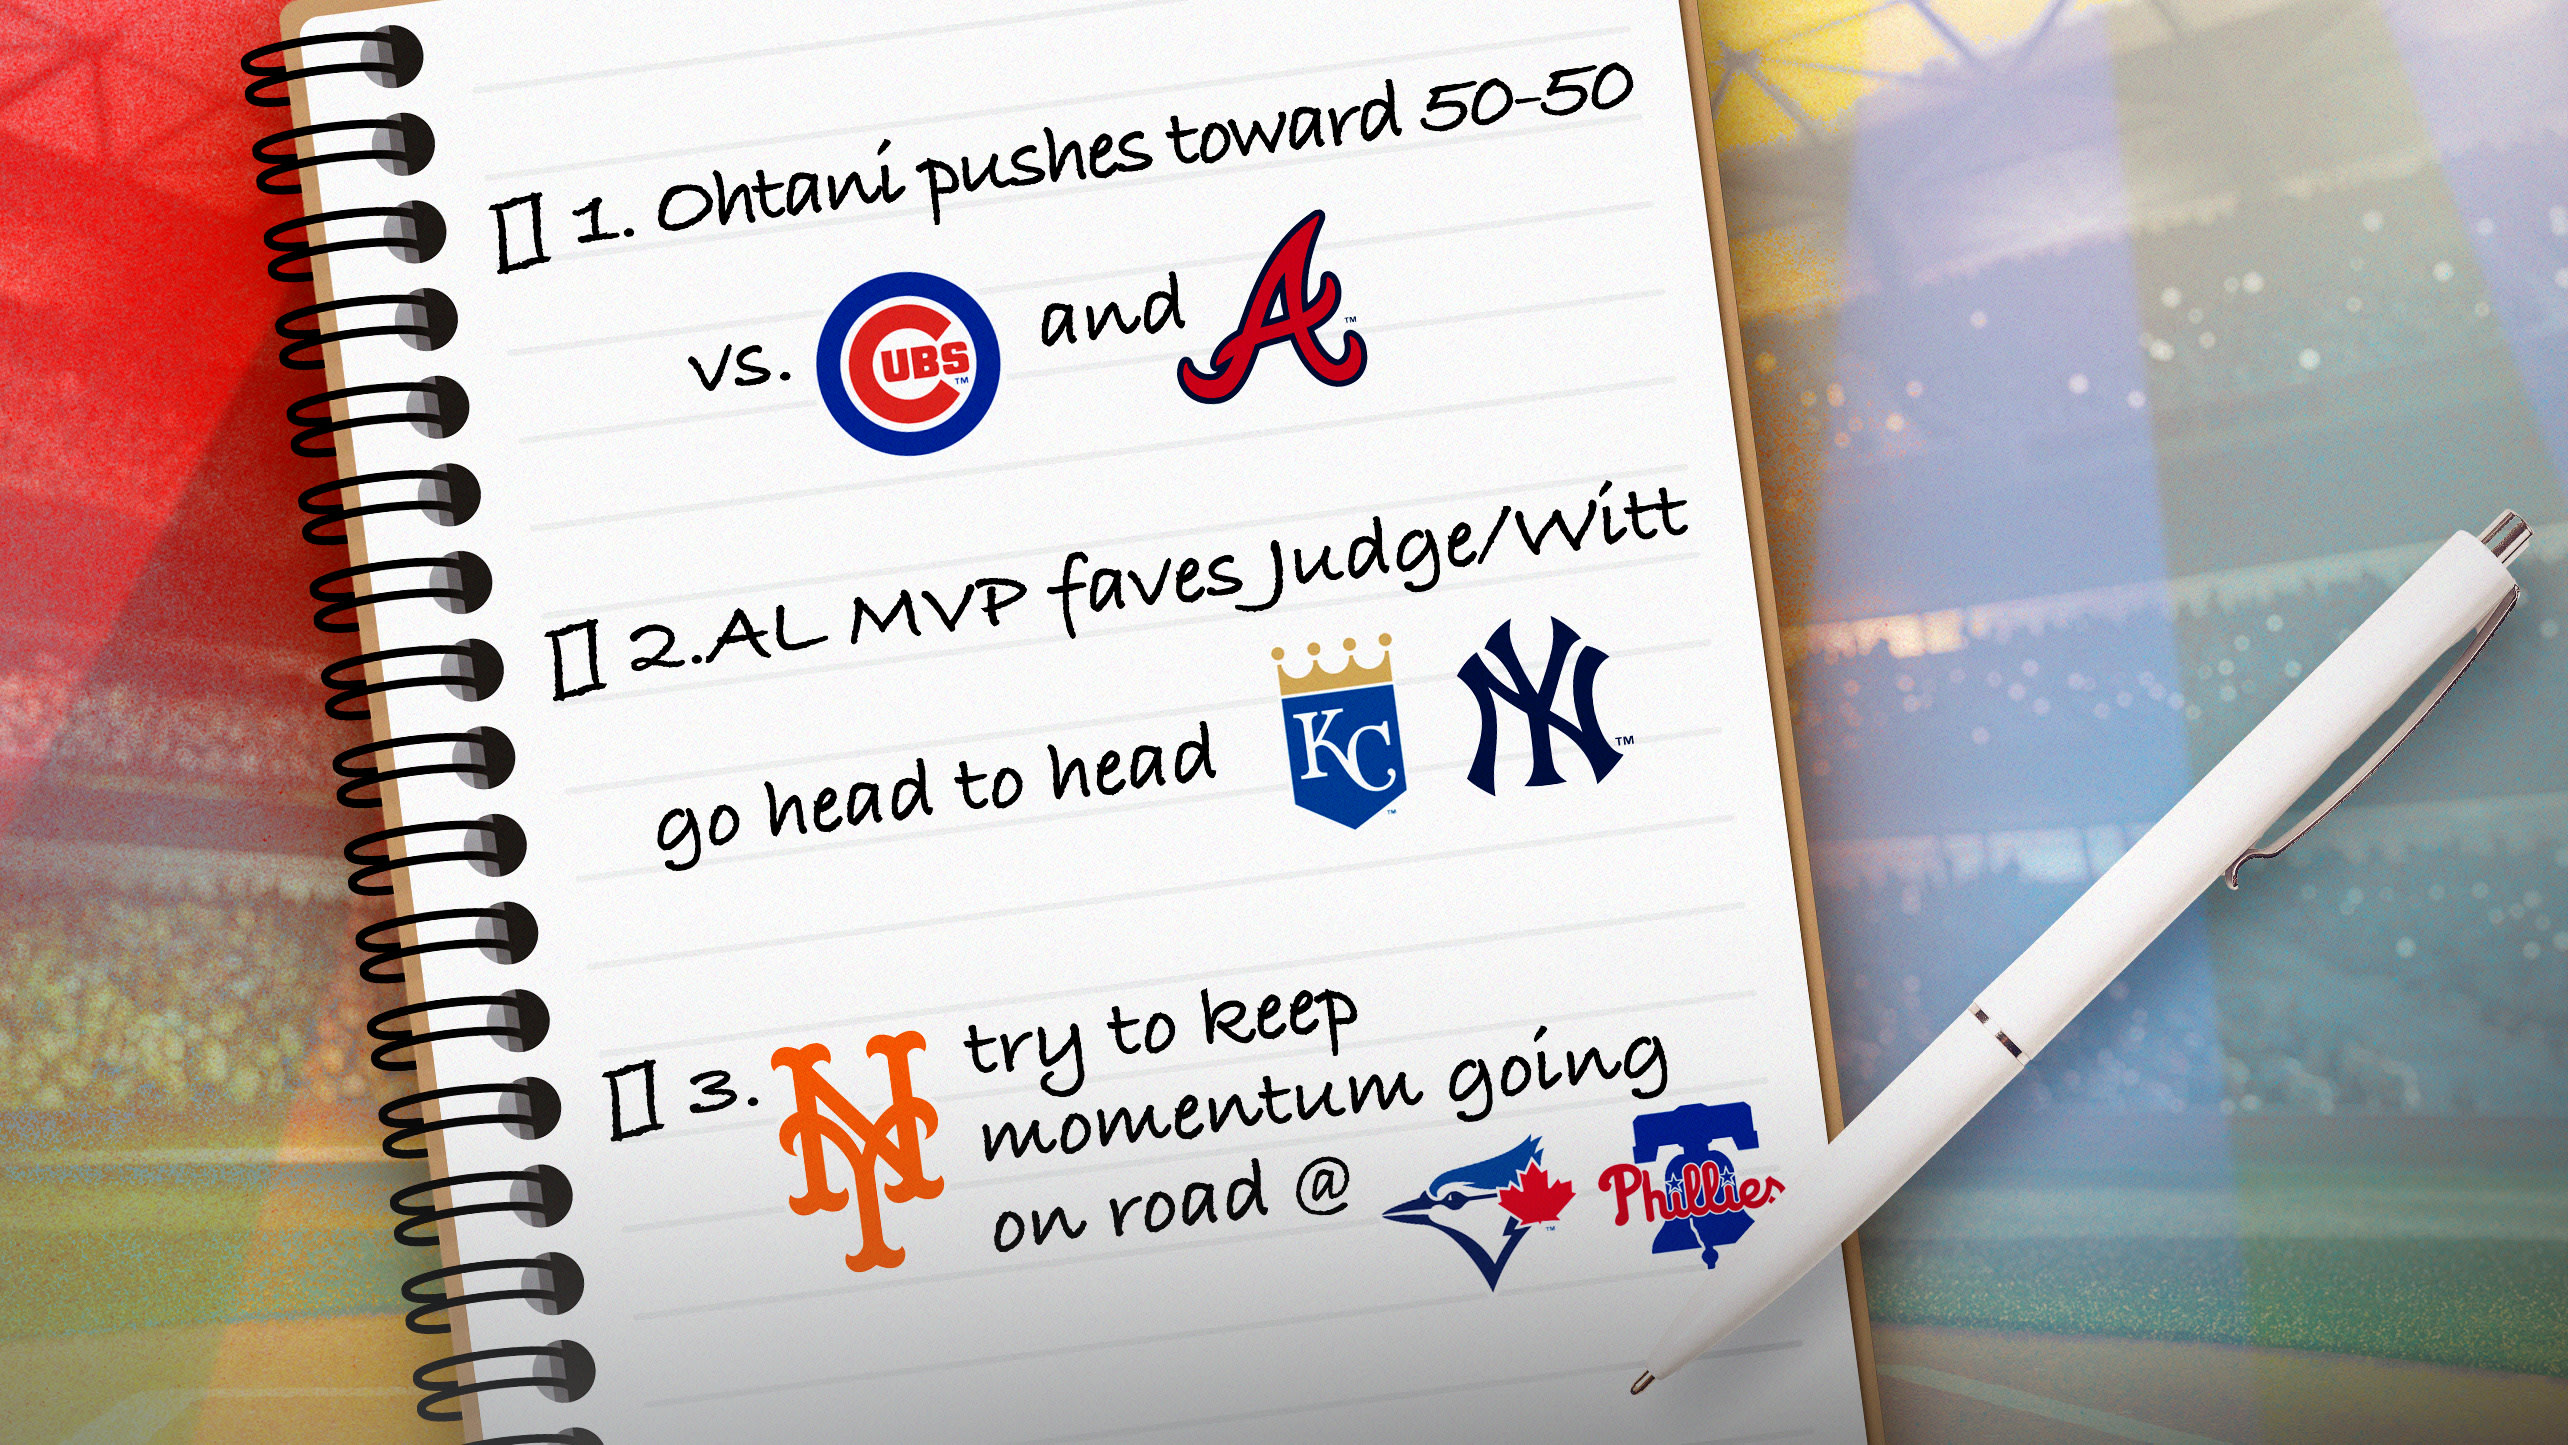 1. Ohtani pushes toward 50-50
vs. CUBS TM and A TM
2.AL MVP faves Judge/Witt
go head to head KC TM NY TM
3. NY try to keep
momentum going
on road @ TM Phillies